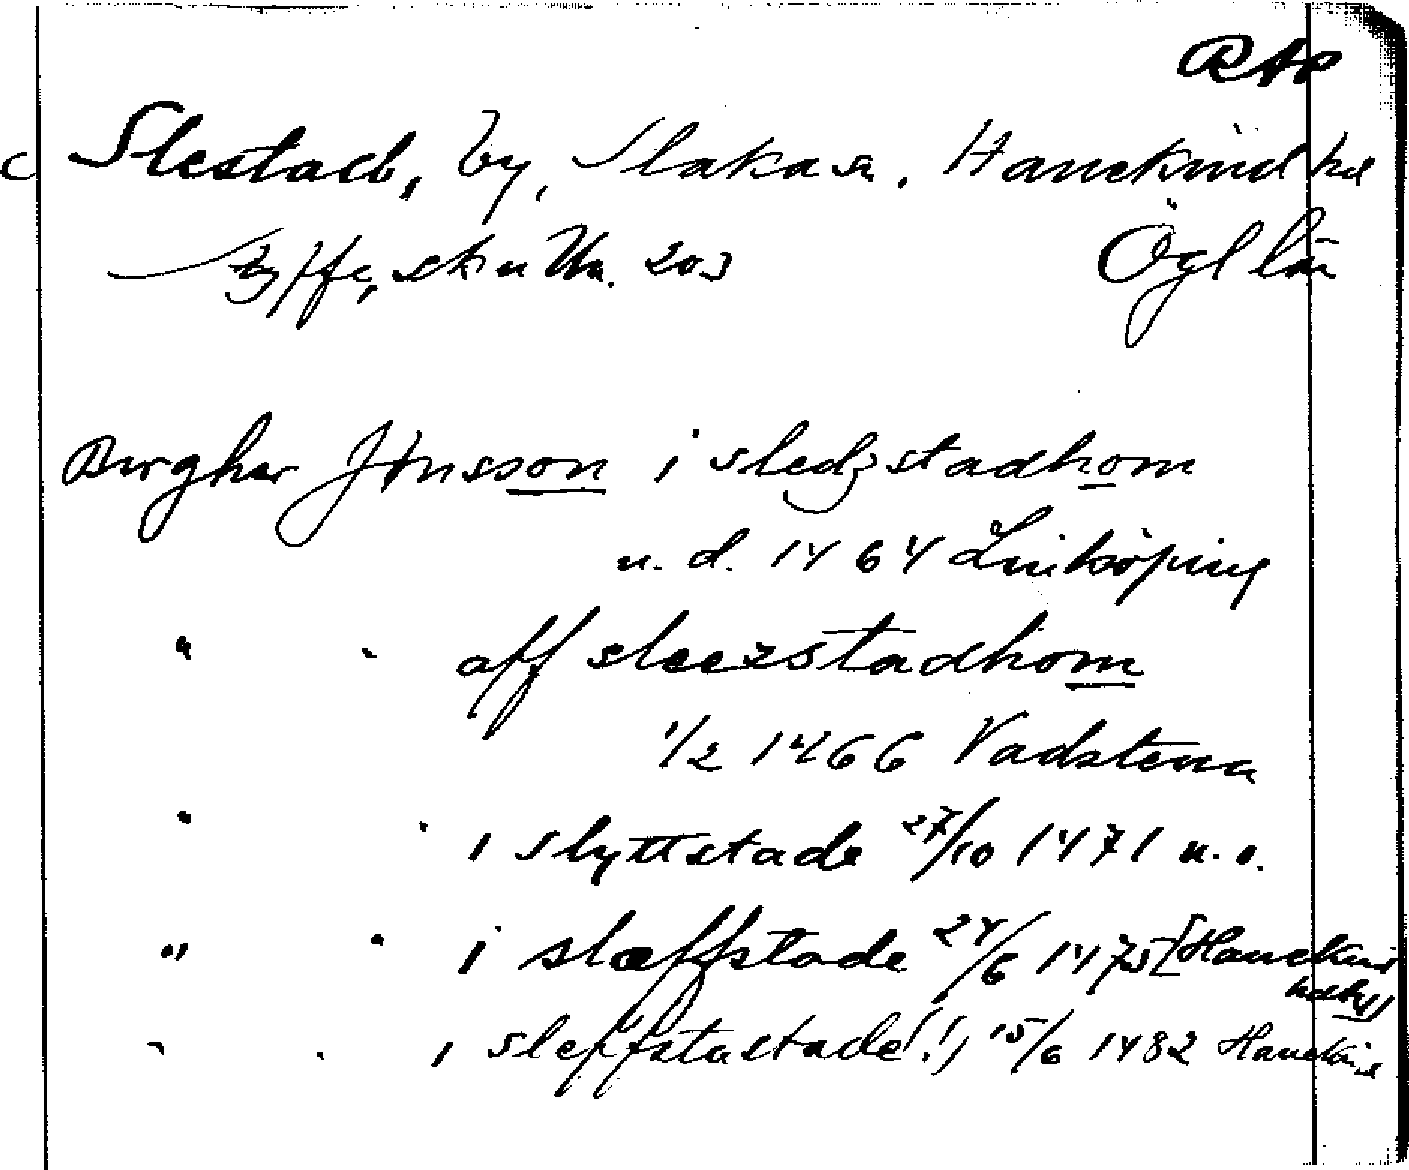 RAP
Slestad, by, Slaka sn. Hanekind hd
Ögl län
Birgher Jönsson i sledzstadhom
u. d. 1464 Linköping
" " aff sleezstadhom
1/2 1466 Vadstena
" " i slyttstade 27/10 1471 u. o.
" " i slæffstade 24/6 1475 [Hanekind
hdsky]
" " i sleffstastade(!) 15/6 1482 Hanekind